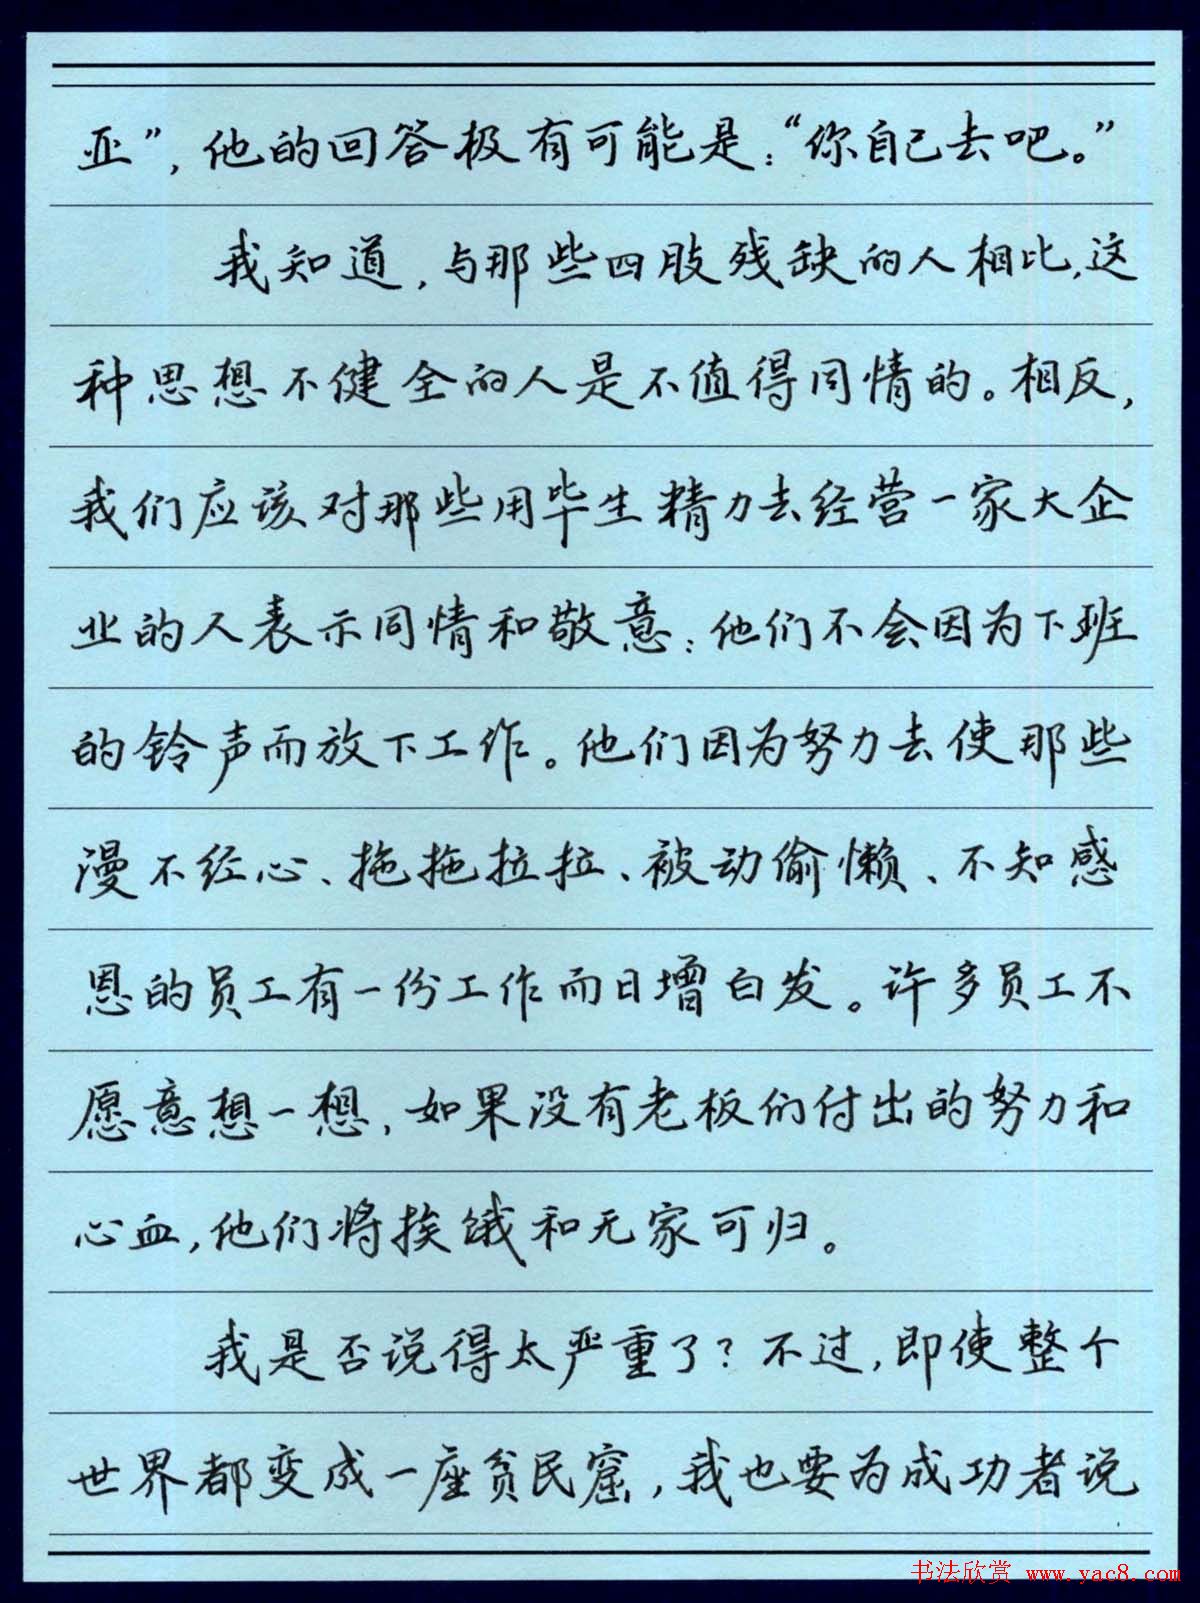 亚”，他的回答极有可能是：“你自己去吧。”
我知道，与那些四肢残缺的人相比，这
种思想不健全的人是不值得同情的。相反，
我们应该对那些用毕生精力去经营一家大企
业的人表示同情和敬意：他们不会因为下班
的铃声而放下工作。他们因为努力去使那些
漫不经心、拖拖拉拉、被动偷懒、不知感
恩的员工有一份工作而日增白发。许多员工不
愿意想一想，如果没有老板们付出的努力和
心血，他们将挨饿和无家可归。
我是否说得太严重了？不过，即使整个
世界都变成一座贫民窟，我也要为成功者说
书法欣赏 www.yac8.com